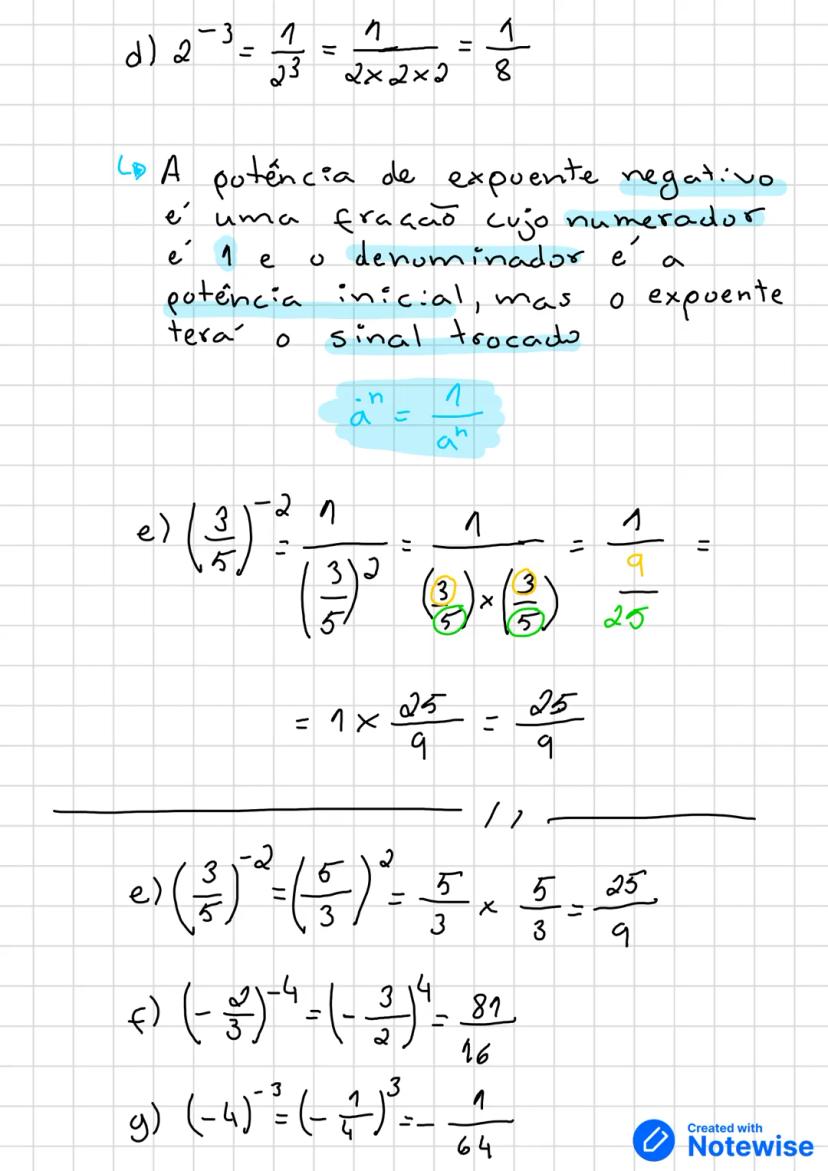 d) 2^-3 = 1/2^3 = 1/(2×2×2) = 1/8
↳ A potência de expoente negativo
é uma fração cujo numerador
é 1 e o denominador é a
potência inicial, mas o expoente
terá o sinal trocado
a^-n = 1/a^n
e) (3/5)^-2 = 1/(3/5)^2 = 1/((3/5)×(3/5)) = 1/(9/25) =
= 1 × 25/9 = 25/9
e) (3/5)^-2 = (5/3)^2 = 5/3 × 5/3 = 25/9
f) (-2/3)^-4 = (-3/2)^4 = 81/16
g) (-4)^-3 = (-1/4)^3 = -1/64
Created with
Notewise